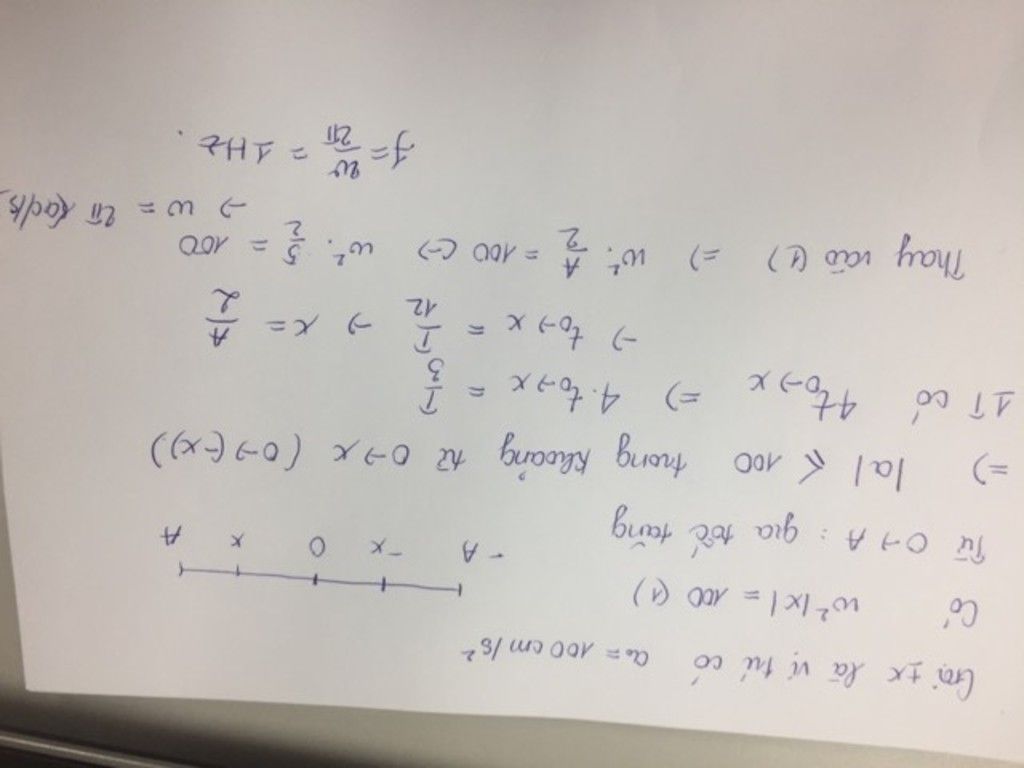 Gọi ±x là vị trí có a₀ = 100 cm/s²
Có w²|x| = 100 (1)
Từ O → A : gia tốc tăng
-A -x O x A
=> |a| ≤ 100 trong khoảng từ O→x (O→(-x))
1T có 4t₀→x => 4.t₀→x = T/3
→ t₀→x = T/12 → x = A/2
Thay vào (1) => w². A/2 = 100 (→) w². 5/2 = 100
→ w = 2π rad/s
f = w/2π = 1Hz.